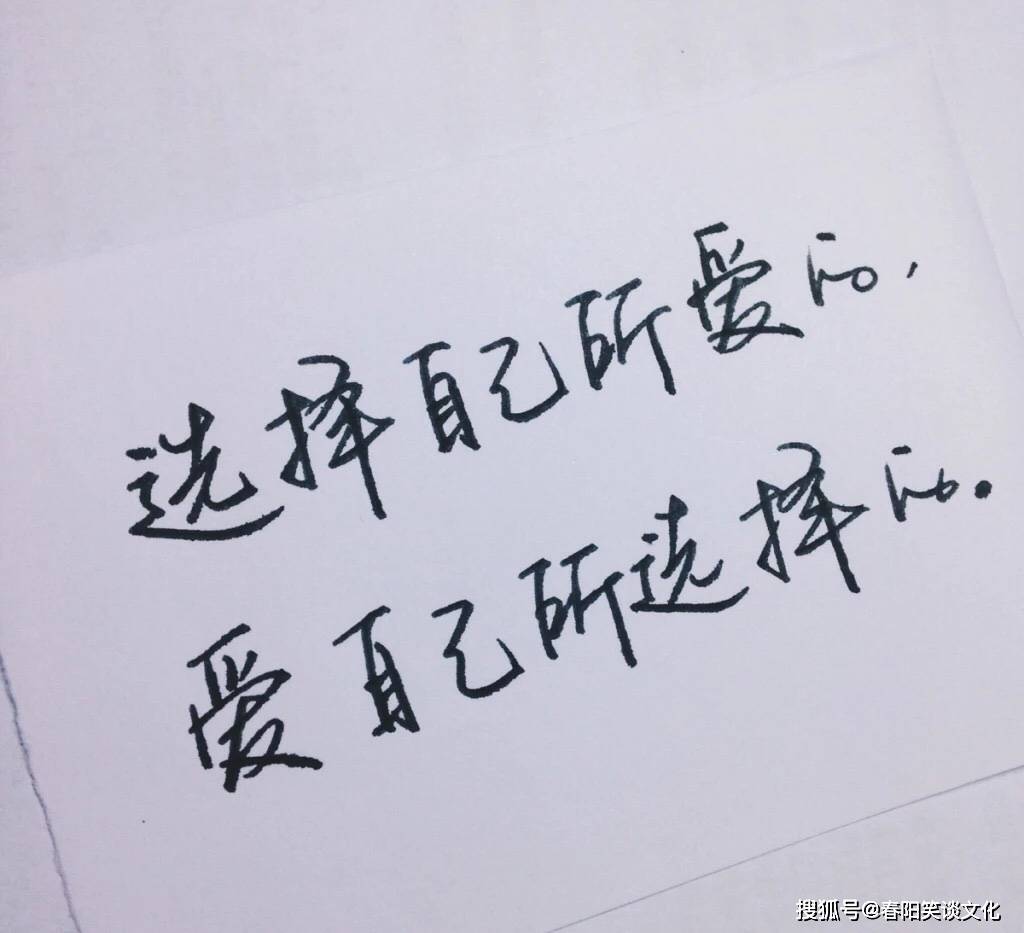 选择自己所爱的,
爱自己所选择的.
搜狐号@春阳笑谈文化